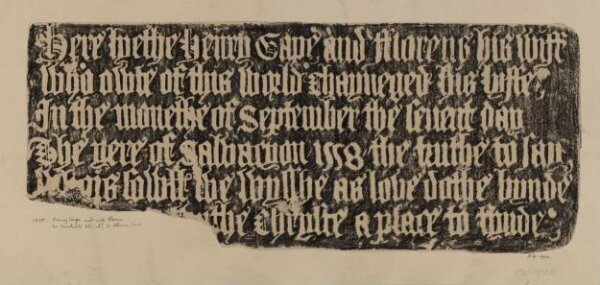 Here lyethe Henry Gape and fflorens his wyff
Who owte of this world chaungeed his lyffe
In the monethe of September the sevent day
The yere of Salvacyon 1558 the truthe to say
sowll the wyll be as love dothe bynde
the Chryste a place to fynde